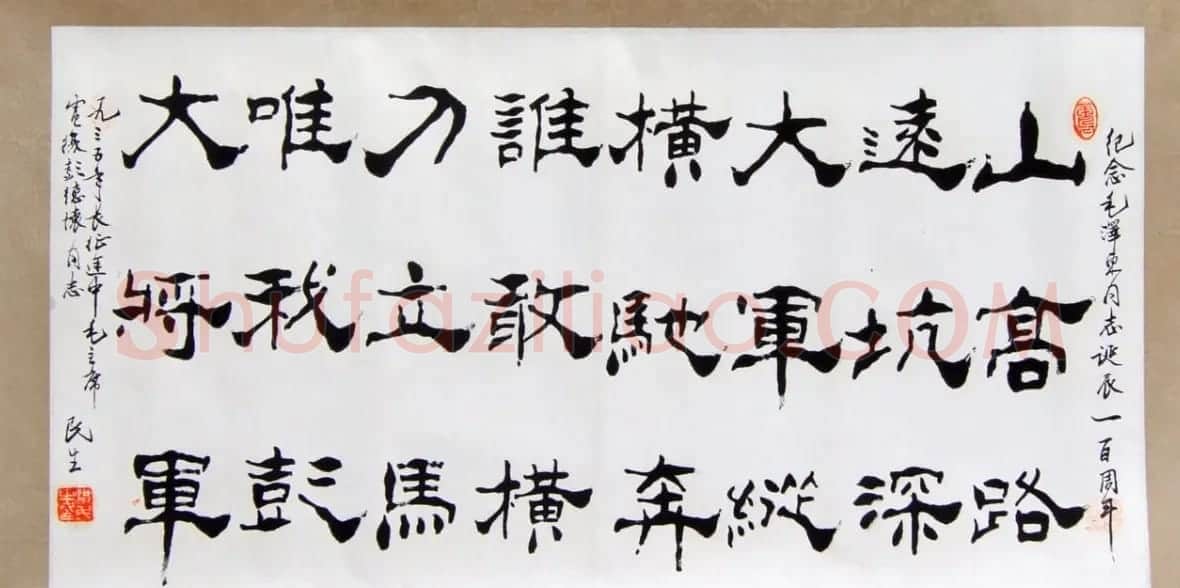 纪念毛澤東同志诞辰一百周年
山高路
遠坑深
大軍縱
橫馳奔
誰敢橫
刀立馬
唯我彭
大將軍
九三五年长征途中毛主席
彭德懷同志
民生
Shufaziliao.COM